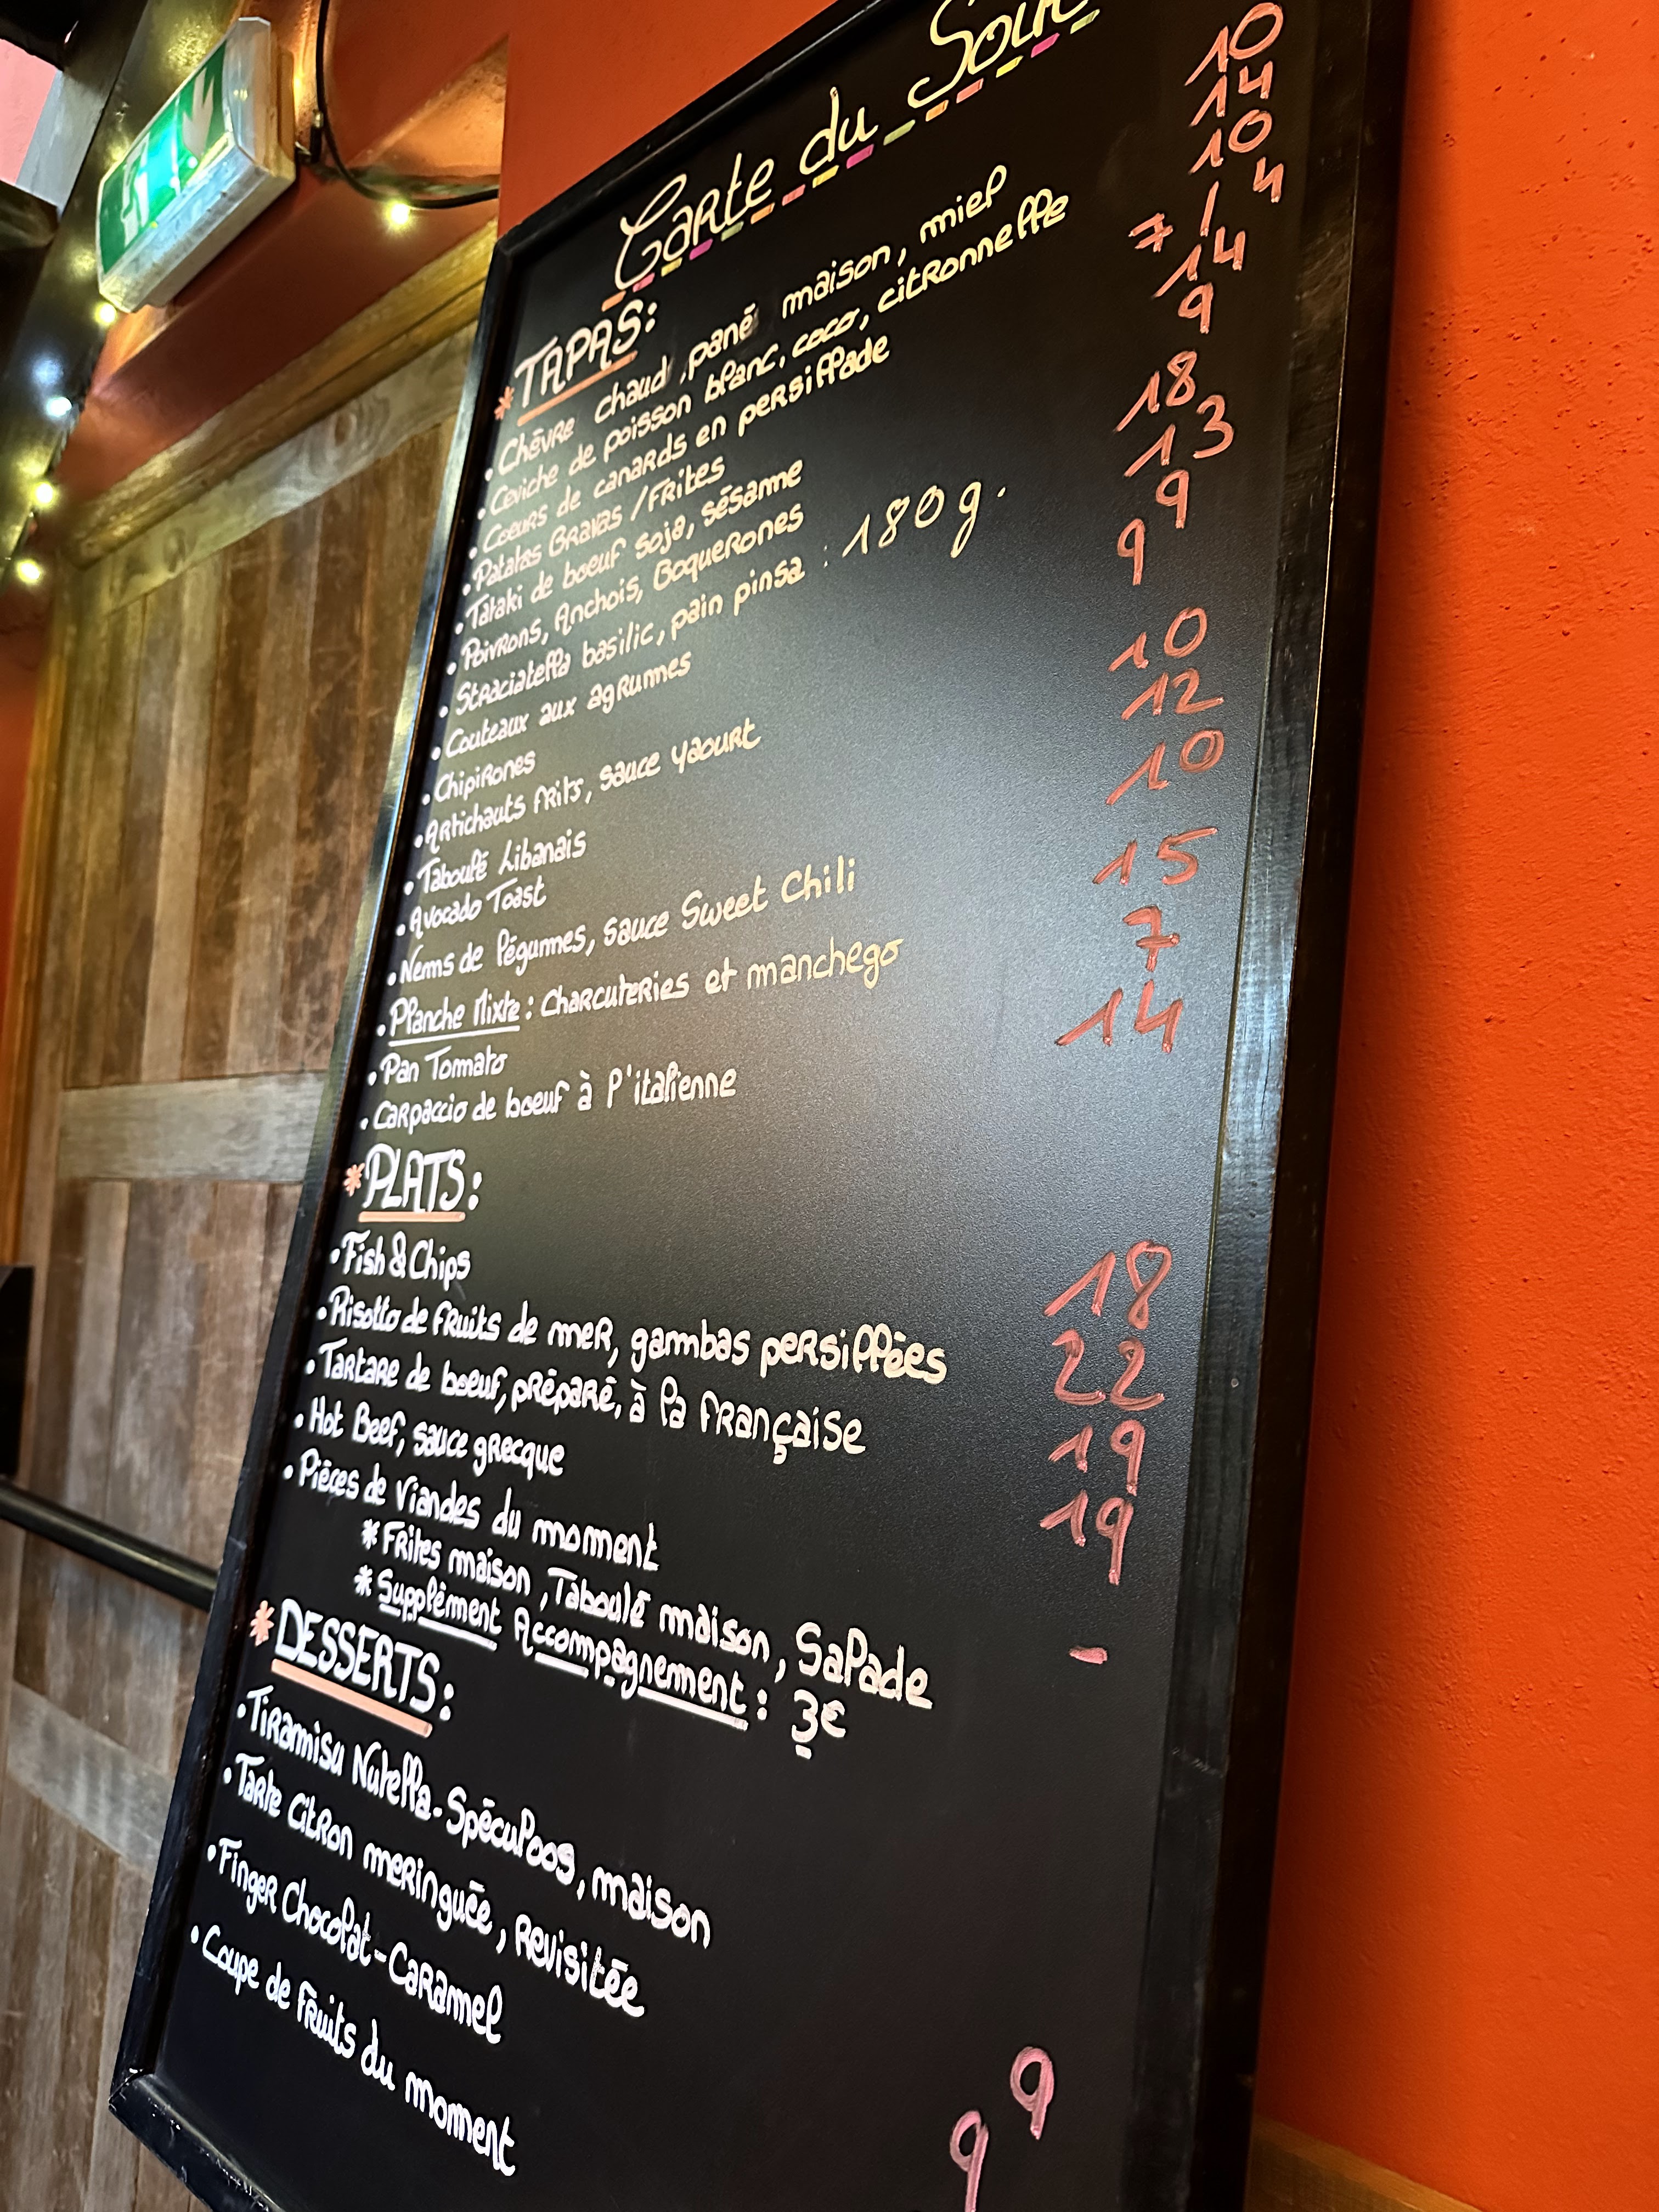 Carte du Soir
10
* TAPAS:
• Chèvre chaud, pané maison, miel 14
• Ceviche de poisson blanc, coco, citronnelle 10
• Coeurs de canards en persillade 7 / 4
• Patatas Bravas / Frites 14
• Tataki de boeuf soja, sésame 9
• Poivrons, Anchois, Boquerones 18
• Straciatella basilic, pain pinsa : 180g. 13
• Couteaux aux agrumes 9
• Chipirones 9
• Artichauts frits, sauce yaourt 10
• Taboulé Libanais 12
• Avocado Toast 10
• Nems de légumes, sauce Sweet Chili 15
• Planche Mixte : Charcuteries et manchego 7
• Pan Tomato 14
• Carpaccio de boeuf à l'italienne
* PLATS:
• Fish & Chips 18
• Risotto de fruits de mer, gambas persillées 22
• Tartare de boeuf, préparé, à la française 19
• Hot Beef, sauce grecque 19
• Pièces de Viandes du moment -
* Frites maison, Taboulé maison, Salade
* Supplément Accompagnement : 3€
* DESSERTS:
• Tiramisu Nutella-Spéculoos, maison
• Tarte Citron meringuée, revisitée
• Finger Chocolat-Caramel 9
• Coupe de Fruits du moment 9